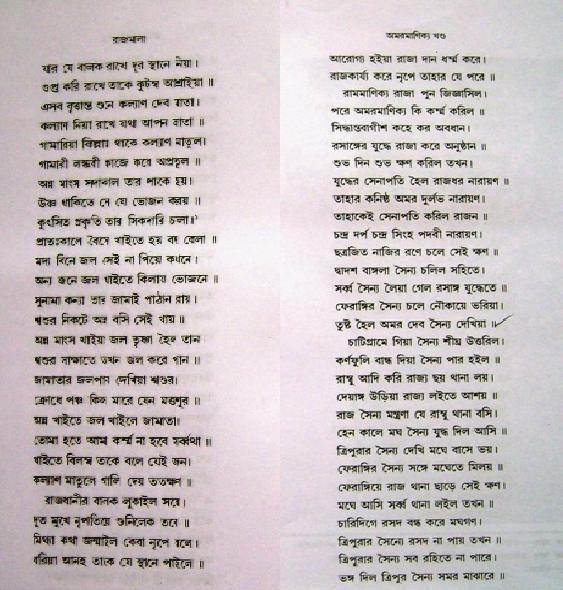 রাজমালা
যার যে বালক রাখে দূর স্থানে নিয়া।
গুপ্ত করি রাখে তাকে কুটম্ব আশ্রাইয়া॥
এসব বৃত্তান্ত শুনে কল্যাণ দেব মাতা।
কল্যাণ নিয়া রাখে যথা আপন মাতা॥
গামারিয়া কিল্লায় থাকে কল্যাণ মাতুল।
গামারী লস্করী কাজে করে অপ্রতুল॥
অন্ন মাংস সদাকাল তার পাকে হয়।
উষ্ণ থাকিতে সে যে ভোজন করয়॥
কুৎসিত প্রকৃতি তার সিকদারি চলা।
প্রাতঃকালে বৈসে খাইতে হয় দণ্ড বেলা॥
মদ্য বিনে জল সেই না পিয়ে কখনে।
অন্য জনে জল খাইতে কিলায় ভোজনে॥
সুনামা কন্যা তার জামাই পাঠান রায়।
শ্বশুর নিকটে অন্ন বসি সেই খায়॥
অন্ন মাংস খাইয়া জল তৃষ্ণা হৈল তান
শ্বশুর সাক্ষাতে তখন জল করে পান॥
জামাতার জলপান দেখিয়া শ্বশুর।
ক্রোধে পঞ্চ কিল মারে যেন মত্তশূর॥
অন্ন খাইতে জল খাইলে জামাতা।
তোমা হতে আমা কর্ম্ম না হবে সর্ব্বথা॥
খাইতে বিলম্ব তাকে বলে যেই জন।
কল্যাণ মাতুলে গালি দেয় ততক্ষণ॥
রাজধানীর বালক লুকাইল সবে।
দূত মুখে নৃপতিয়ে শুনিলেক তবে॥
মিথ্যা কথা জন্মাইল কেবা নৃপে বলে।
ধরিয়া আনহ তাকে যে স্থানে পাইলে॥
অমরমাণিক্য খণ্ড
আরোগ্য হইয়া রাজা দান ধর্ম্ম করে।
রাজকার্য্য করে নৃপে তাহার যে পরে॥
রামমাণিক্য রাজা পুন জিজ্ঞাসিল।
পরে অমরমাণিক্য কি কর্ম্ম করিল॥
সিদ্ধান্তবাগীশ কহে কর অবধান।
রসাঙ্গের যুদ্ধে রাজা করে অনুষ্ঠান॥
শুভ দিন শুভ ক্ষণ করিল তখন।
যুদ্ধের সেনাপতি হৈল রাজধর নারায়ণ॥
তাহার কনিষ্ঠ অমর দুর্লভ নারায়ণ।
তাহাকেই সেনাপতি করিল রাজন॥
চন্দ্র দর্প চন্দ্র সিংহ পদবী নারায়ণ।
ছত্রজিত নাজির রণে চলে সেই ক্ষণ॥
দ্বাদশ বাঙ্গলা সৈন্য চলিল সহিতে।
সর্ব্ব সৈন্য লৈয়া গেল রসাঙ্গ যুদ্ধেতে॥
ফেরাঙ্গির সৈন্য চলে নৌকায়ে ভরিয়া।
তুষ্ট হৈল অমর দেব সৈন্য দেখিয়া॥
চাটিগ্রামে গিয়া সৈন্য শীঘ্র উত্তরিল।
কর্ণফুলি বান্ধ দিয়া সৈন্য পার হইল॥
রাম্বু আদি করি রাজ্য ছয় থানা লয়।
দেয়াঙ্গ উড়িয়া রাজ্য লইতে আশয়॥
রাজ সৈন্য মন্ত্রণা যে রাম্বু থানা বসি।
হেন কালে মঘ সৈন্য যুদ্ধ দিল আসি॥
ত্রিপুরার সৈন্য দেখি মঘে বাসে ভয়।
ফেরাঙ্গির সৈন্য সঙ্গে মঘেতে মিলয়॥
ফেরাঙ্গিয়ে রাজ থানা ছাড়ে সেই ক্ষণ।
মঘে আসি সর্ব্ব থানা লইল তখন॥
চারিদিগে রসদ বন্ধ করে মঘগণ।
ত্রিপুরার সৈন্যে রসদ না পায় তখন॥
ত্রিপুরার সৈন্য সব রহিতে না পারে।
ভঙ্গ দিল ত্রিপুর সৈন্য সমর মাঝারে॥